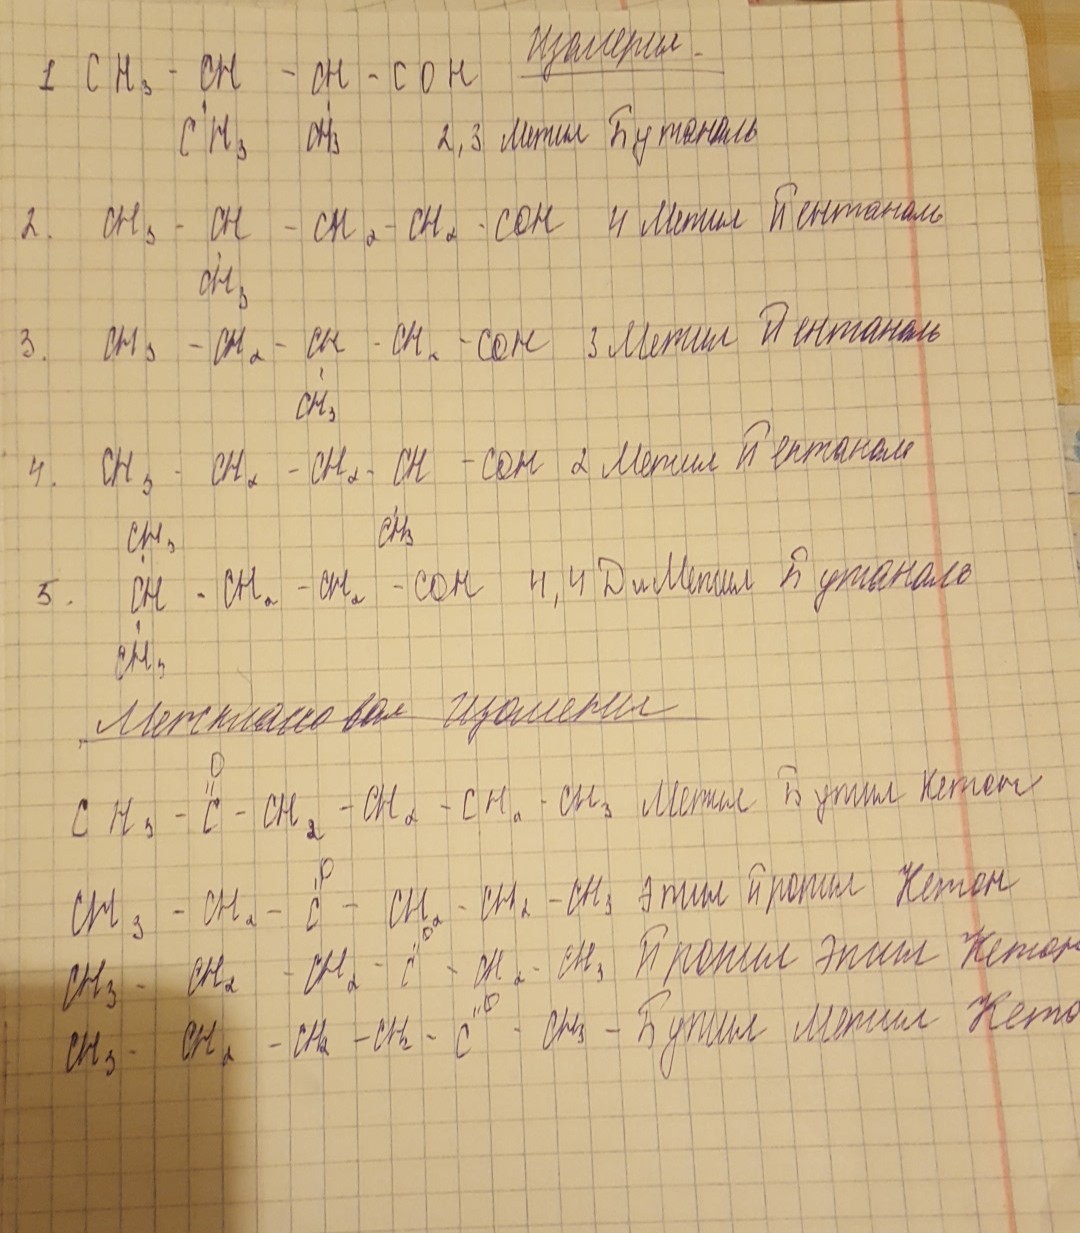 Изомерия
1 CH3 - CH - CH - COH
CH3 CH3 2,3 Метил Бутаналь
2. CH3 - CH - CH2 - CH2 - COH 4 Метил Пентаналь
CH3
3. CH3 - CH2 - CH - CH2 - COH 3 Метил Пентаналь
CH3
4. CH3 - CH2 - CH2 - CH - COH 2 Метил Пентаналь
CH3 CH3
5. CH - CH2 - CH2 - COH 4,4 ДиМетил Бутаналь
CH3
Межклассовая изомерия
O
CH3 - C - CH2 - CH2 - CH2 - CH3 Метил Бутил Кетон
O
CH3 - CH2 - C - CH2 - CH2 - CH3 Этил Пропил Кетон
O
CH3 - CH2 - CH2 - C - CH2 - CH3 Пропил Этил Кетон
O
CH3 - CH2 - CH2 - CH2 - C - CH3 - Бутил Метил Кето